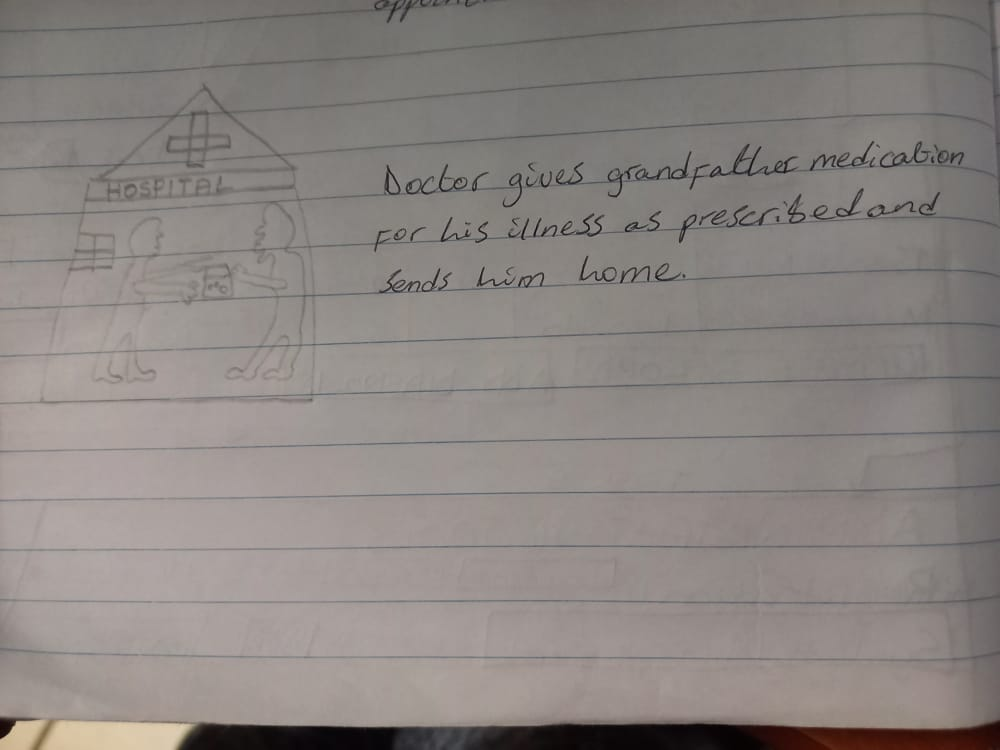 HOSPITAL
Doctor gives grandfather medication
For his illness as prescribed and
sends him home.